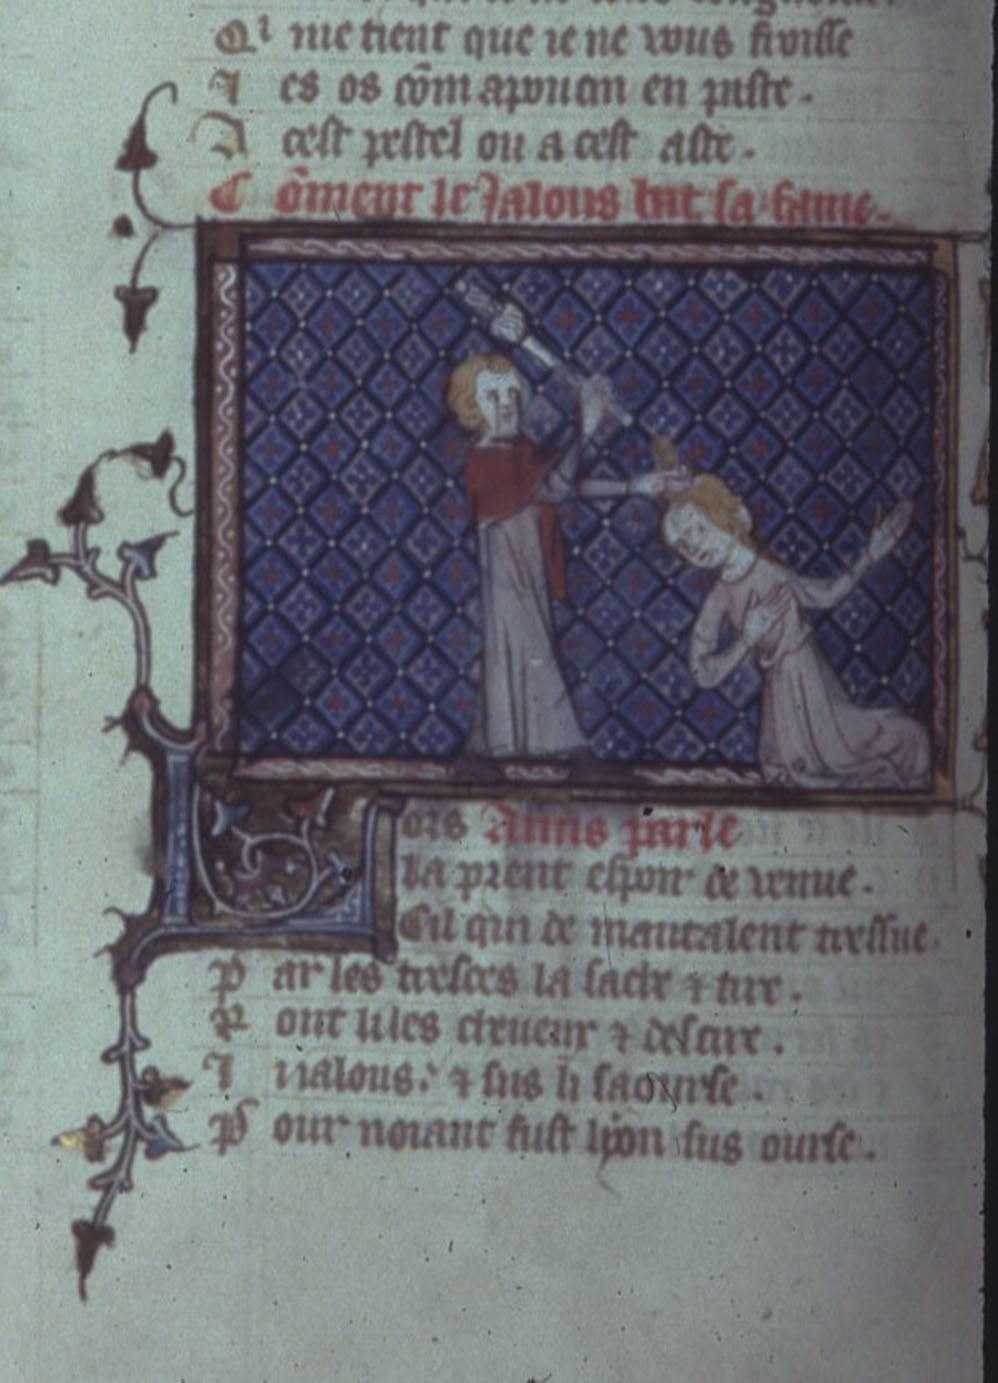 Qi me tient que ie ne vous froisse
Les os cõm a poucin en paste.
A cest pestel ou a cest aste.
Cõment le Jalous bat sa fame.
Lors Amis parle
la prent espoir de venue.
Cil qui de mautalent tressue.
Par les tresces la sache & tire.
Ront li les cheueux & descire.
Li ialous. & sus li saourse.
Pour noiant fust lyon sus ourse.